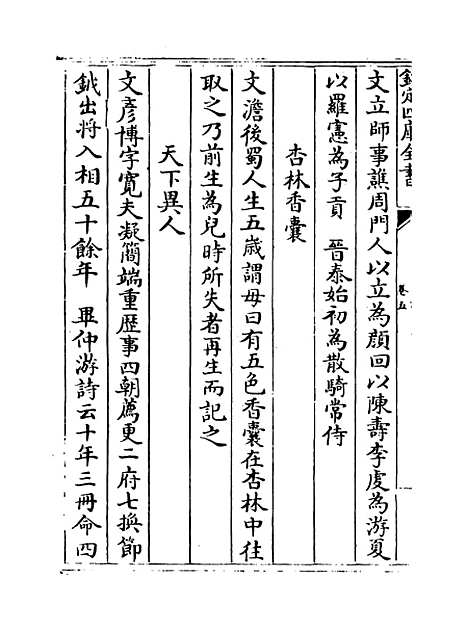 欽定四庫全書
卷五
文立師事譙周門人以立為顔回以陳壽李䖍為游夏
以羅憲為子貢　晉泰始初為散騎常侍
杏林香囊
文澹後蜀人生五歲謂母曰有五色香囊在杏林中往
取之乃前生為兒時所失者再生而記之
天下異人
文彥博字寬夫凝簡端重歷事四朝薦更二府七換節
鉞出将入相五十餘年　畢仲游詩云十年三冊命四